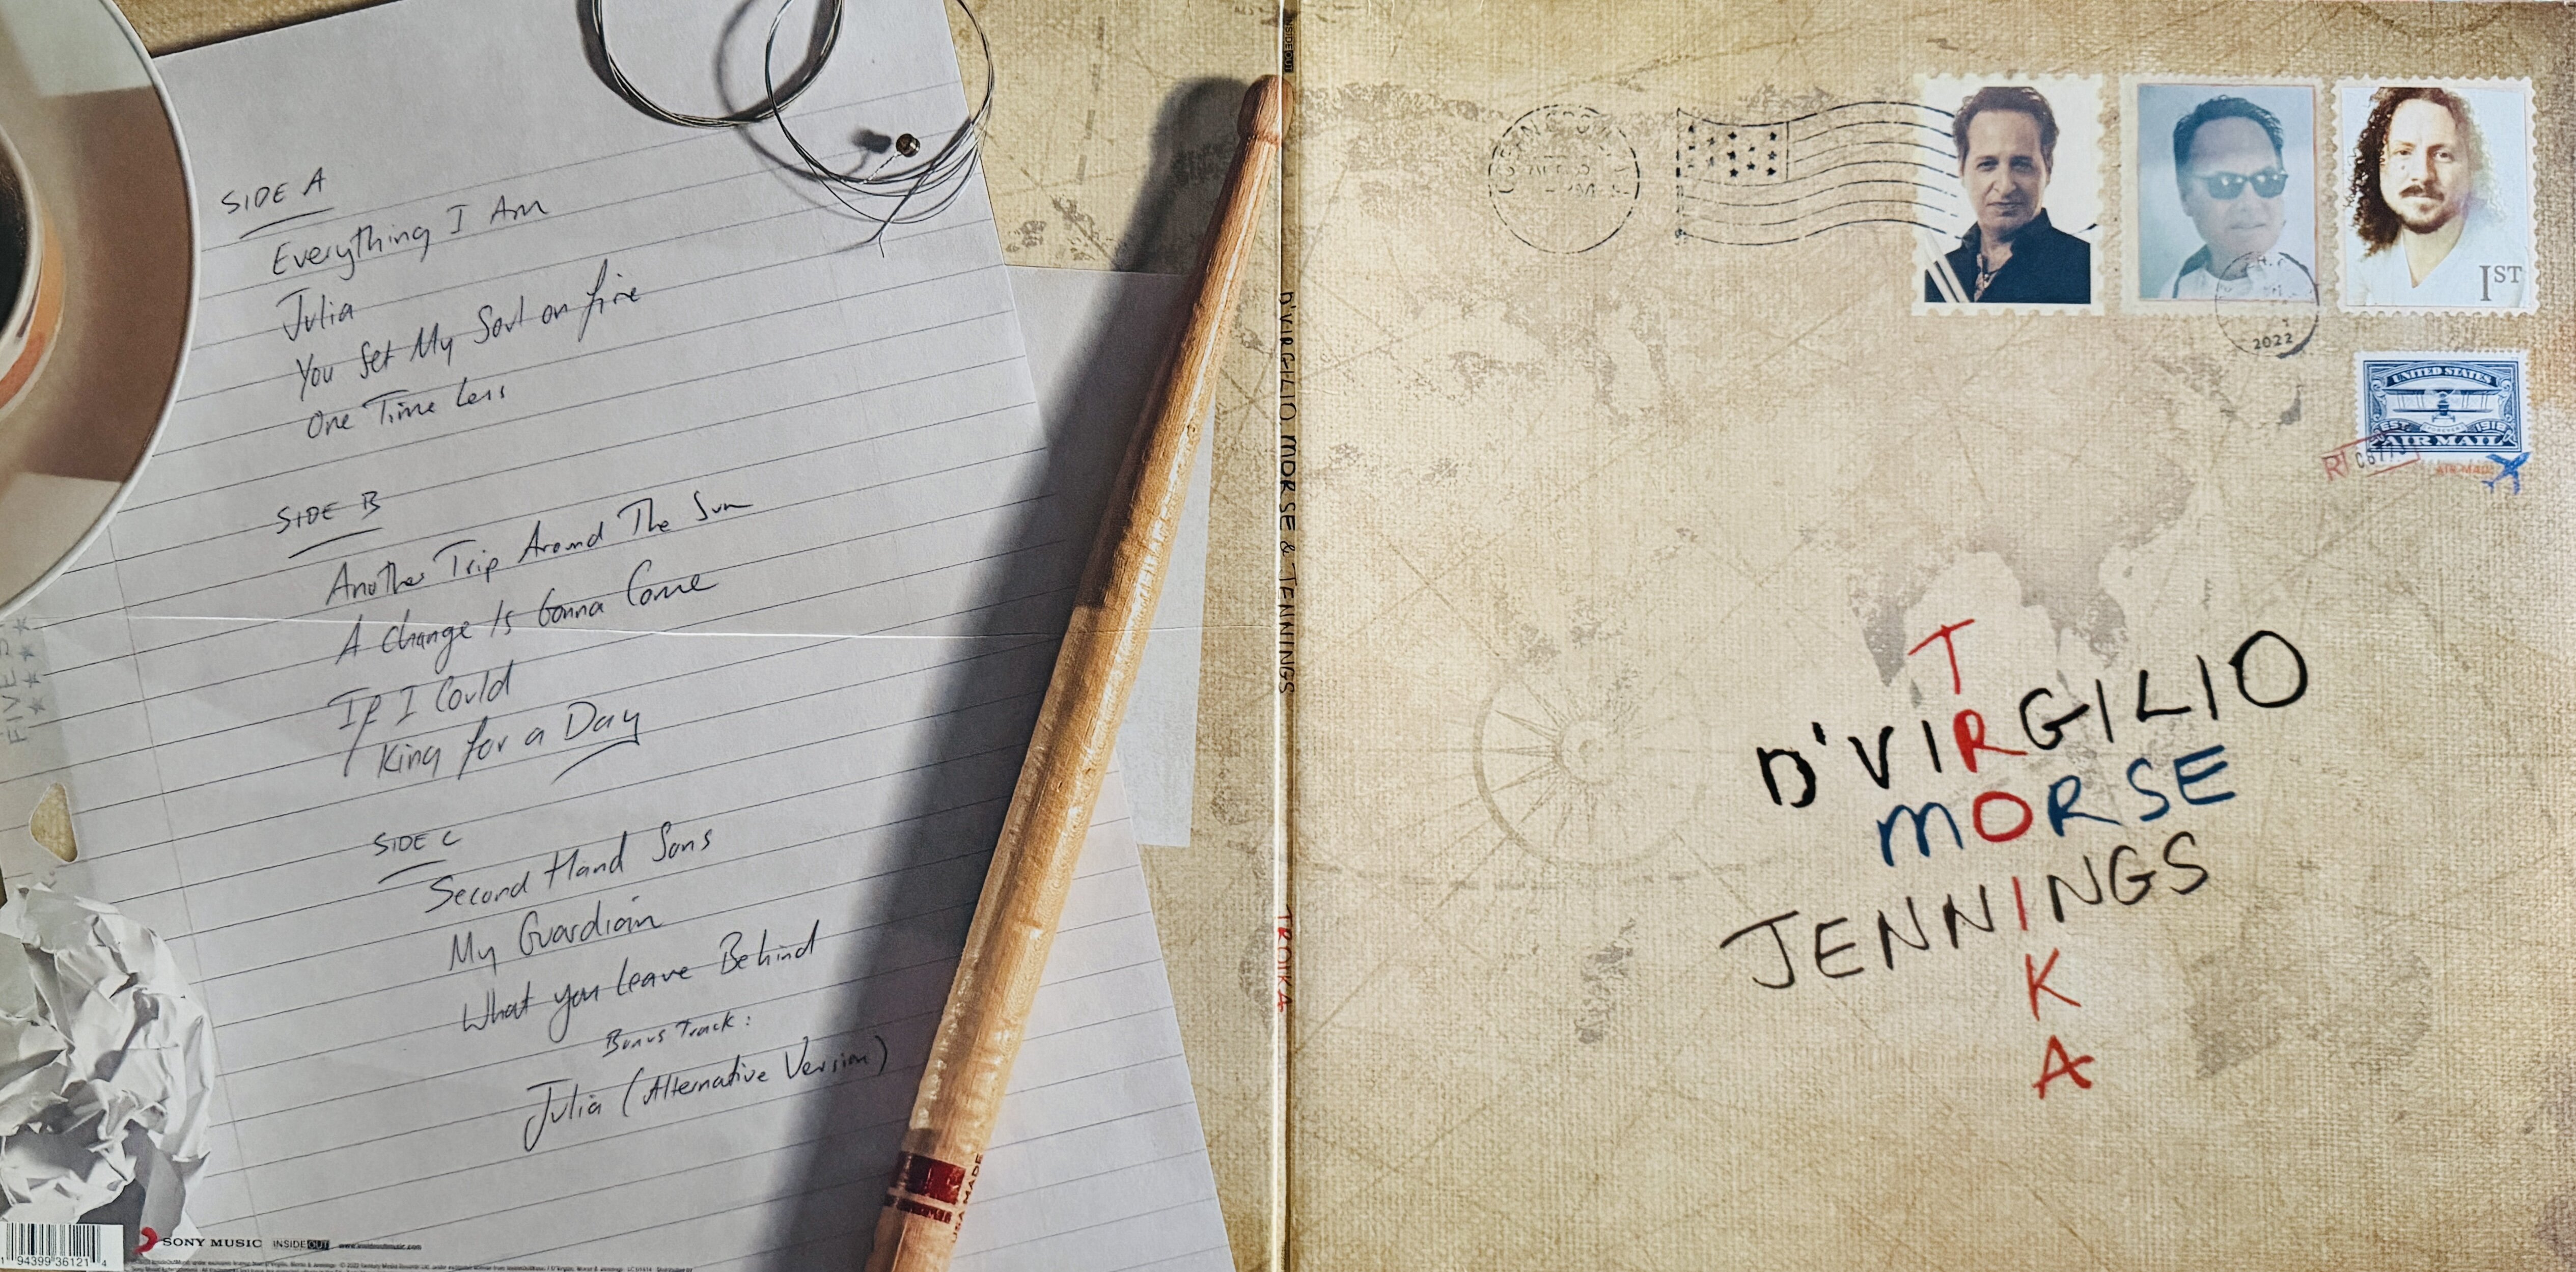 SIDE A
Everything I Am
Julia
You Set My Soul on fire
One Time Less
SIDE B
Another Trip Around The Sun
A Change Is Gonna Come
If I Could
King for a Day
SIDE C
Second Hand Sons
My Guardian
What you Leave Behind
Bonus Track:
Julia (Alternative Version)
FIVE
USA MADE
1 94399 36121 4
SONY MUSIC INSIDEOUT www.insideoutmusic.com
INSIDEOUT
D'VIRGILIO, MORSE & JENNINGS
TROIKA
1ST
2022
UNITED STATES
EST 1918
AIR MAIL
R1
AIR MAIL
T
D'VIRGILIO
MORSE
JENNINGS
K
A